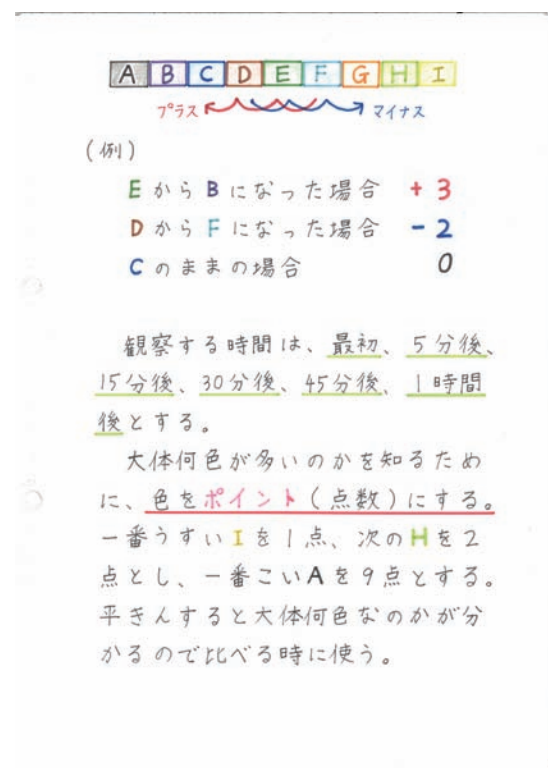 A B C D E F G H I
プラス マイナス
(例)
EからBになった場合 +3
DからFになった場合 -2
Cのままの場合 0
観察する時間は、最初、5分後、
15分後、30分後、45分後、1時間
後とする。
大体何色が多いのかを知るため
に、色をポイント(点数)にする。
一番うすいIを1点、次のHを2
点とし、一番こいAを9点とする。
平きんすると大体何色なのかが分
かるので比べる時に使う。